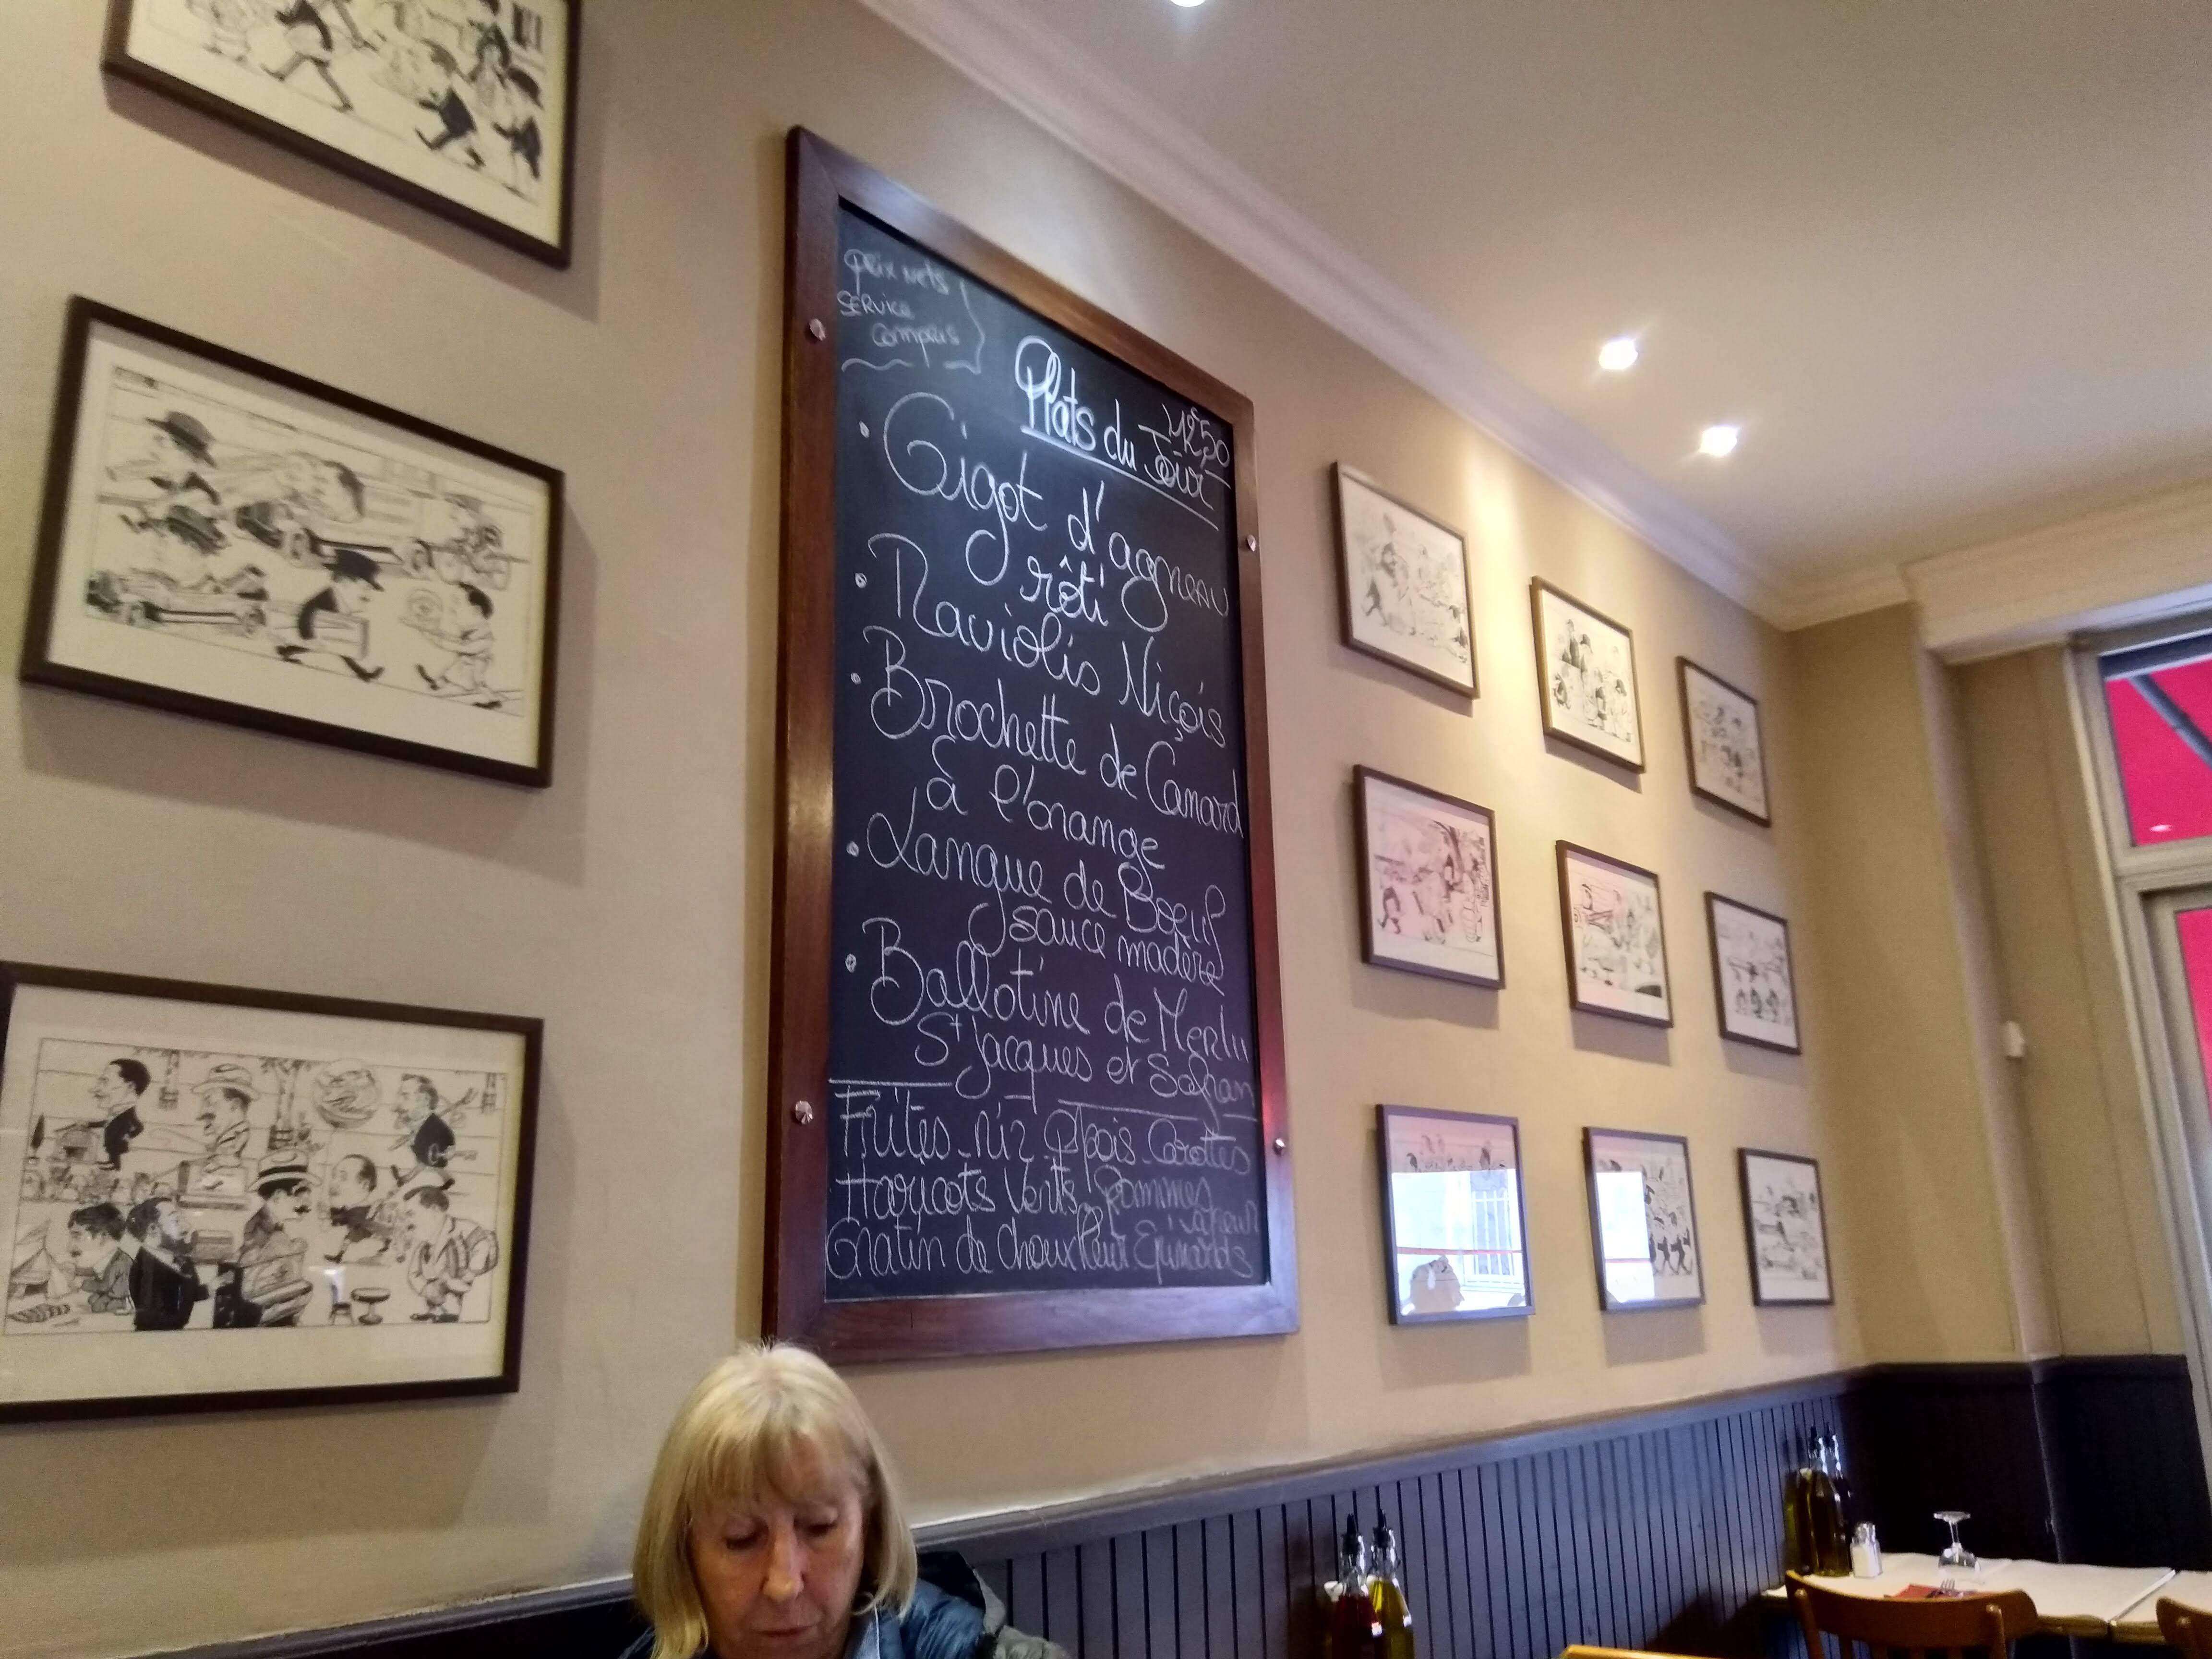 Prix nets
Service
Compris
12€50
Plats du Jour
• Gigot d'agneau
rôti
• Raviolis Niçois
• Brochette de Canard
à l'orange
• Langue de Boeuf
sauce madère
• Ballotine de Merlu
St Jacques et Safran
Frites - riz - Ptpois Carottes
Haricots Verts, Pommes
vapeur
Gratin de Chouxfleur Epinards